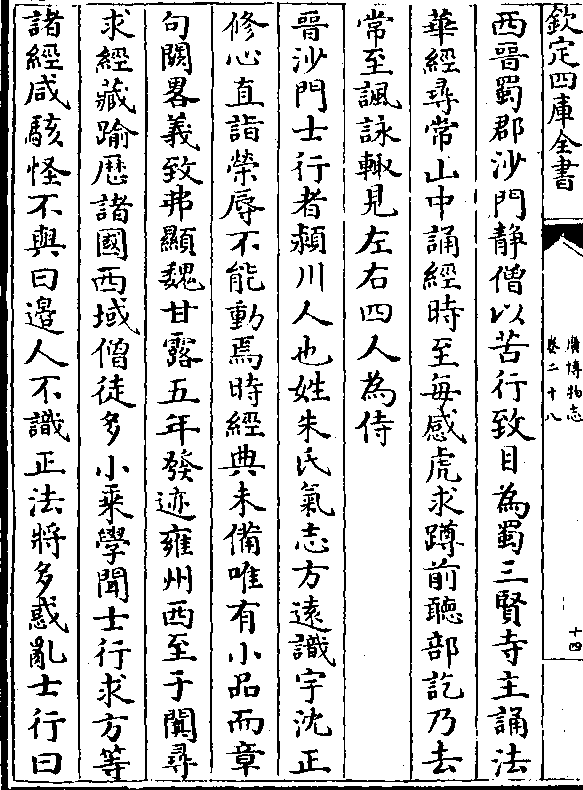 欽定四庫全書
廣博物志
卷二十八
十四
西晉蜀郡沙門静僧以苦行致目為蜀三賢寺主誦法
華經尋常山中誦經時至每感虎求蹲前聽部訖乃去
常至諷詠輙見左右四人為侍
晉沙門士行者潁川人也姓朱氏氣志方逺識宇沈正
修心直詣榮辱不能動焉時經典未備唯有小品而章
句闕畧義致弗顯魏甘露五年發迹雍州西至于闐尋
求經藏踰歴諸國西域僧徒多小乗學聞士行求方等
諸經咸駭怪不與曰邉人不識正法將多惑亂士行曰